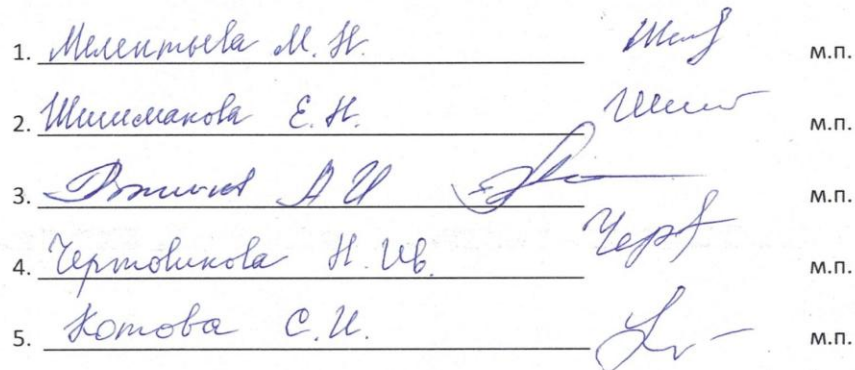 1. Мелентьева М. Н. м.п.
2. Шишманова Е. Н. м.п.
3. А И м.п.
4. Чертовикова Н. Ив. Черт м.п.
5. Котова С. И. м.п.